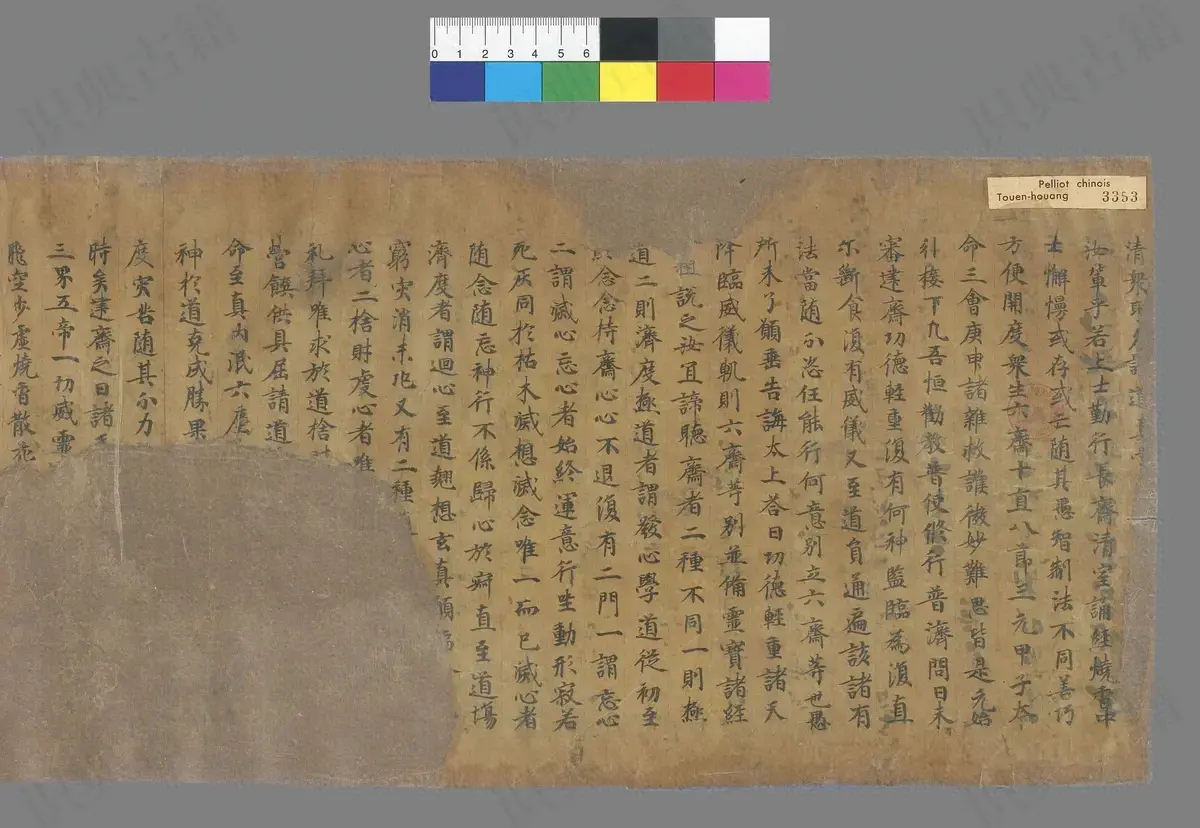 Pelliot chinois
Touen-houang 3353
0 1 2 3 4 5 6
清衆
汝軰乎若上士勤行長齋清室誦經燒香中
士懈慢或存或亡随其愚智制法不同善巧
方便開度衆生六齋十直八節三元甲子本
命三會庚申諸雜救護微妙難思皆是元始
行檀下九吾恒勸教普使脩行普濟問曰未
審建齋功德輕重復有何神監臨為復直
尔斷食復有威儀又至道負通遍該諸有
法當随分恣任能行何意別立六齋等也愚
所未了願垂告誨太上荅曰功德輕重諸天
降臨威儀軌則六齋等別並備靈寶諸經
説之汝且諦聽齋者二種不同一則極
道二則濟度極道者謂發心學道從初至
念念持齋心心不退復有二門一謂忘心
二謂滅心忘心者始終運意行坐動形寂若
死灰同於枯木滅想滅念唯一而已滅心者
随念随忘神行不係歸心於寂直至道塲
濟度者謂迴心至道翹想玄真願
窮灾消未兆又有二種
心者二捨財虔心者唯
礼拜唯求於道捨
營饌供具屈請道
命至真內泯六塵
神於道克成勝果
度灾咎随其分力
時矣建齋之日諸
三界五帝一切威靈
飛空步虛燒香散花